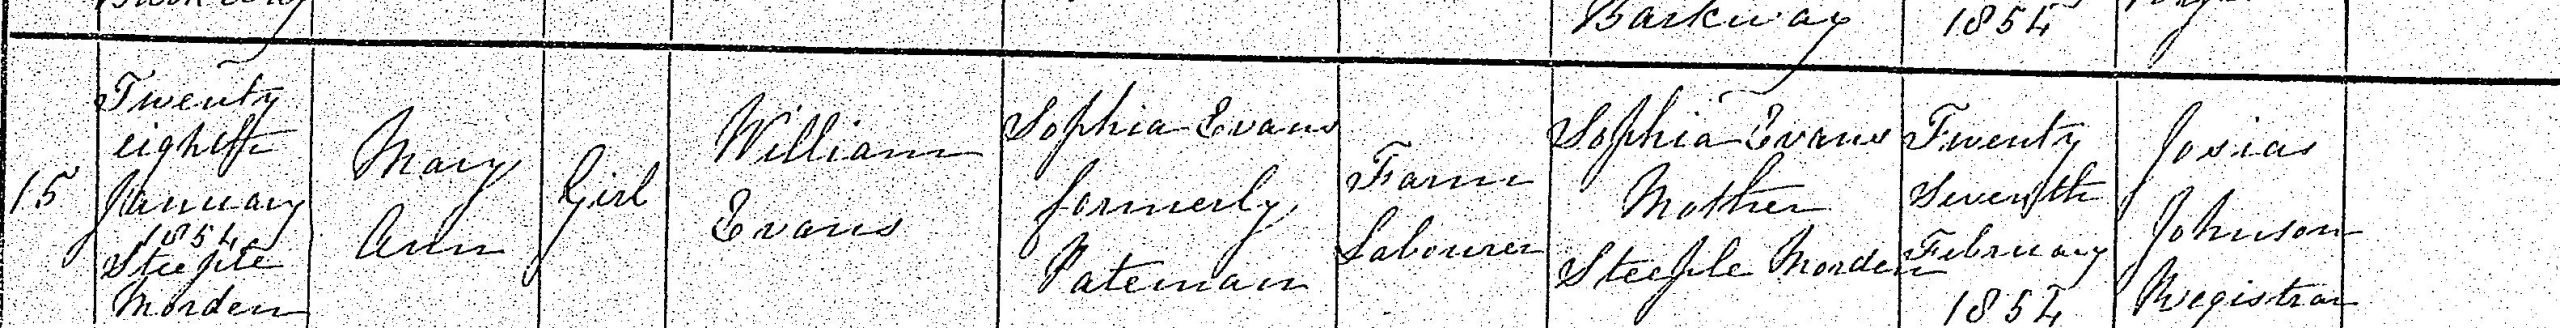 Barkway
1854
15
Twenty
eighth
January
1854
Steeple
Morden
Mary
Ann
Girl
William
Evans
Sophia Evans
formerly
Pateman
Farm
Labourer
Sophia Evans
Mother
Steeple Morden
Twenty
Seventh
February
1854
Josias
Johnson
Registrar